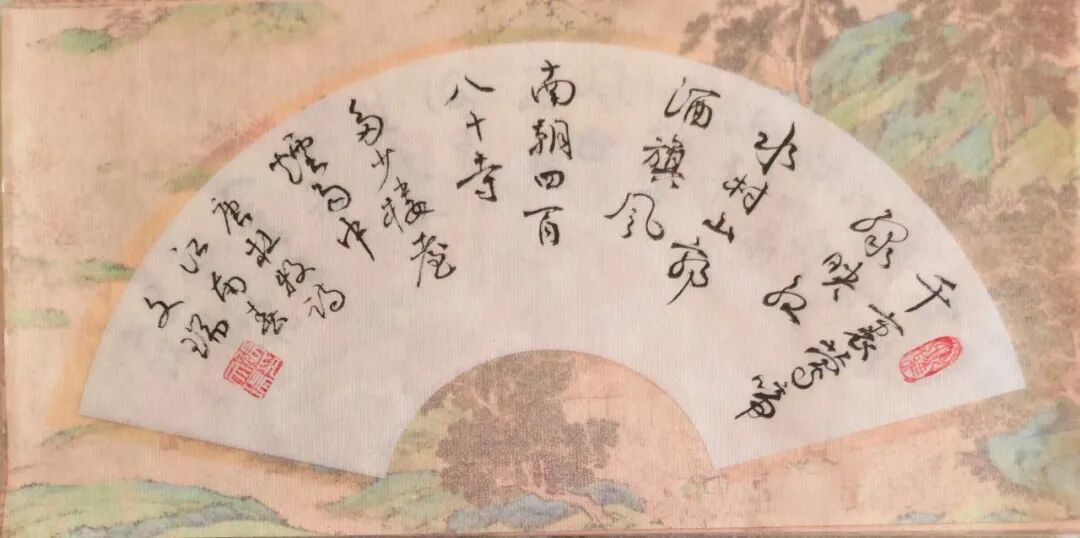 千裏鶯啼
绿映红
水村山郭
酒旗风
南朝四百
八十寺
多少楼臺
煙雨中
唐杜牧诗
江南春
文瑞